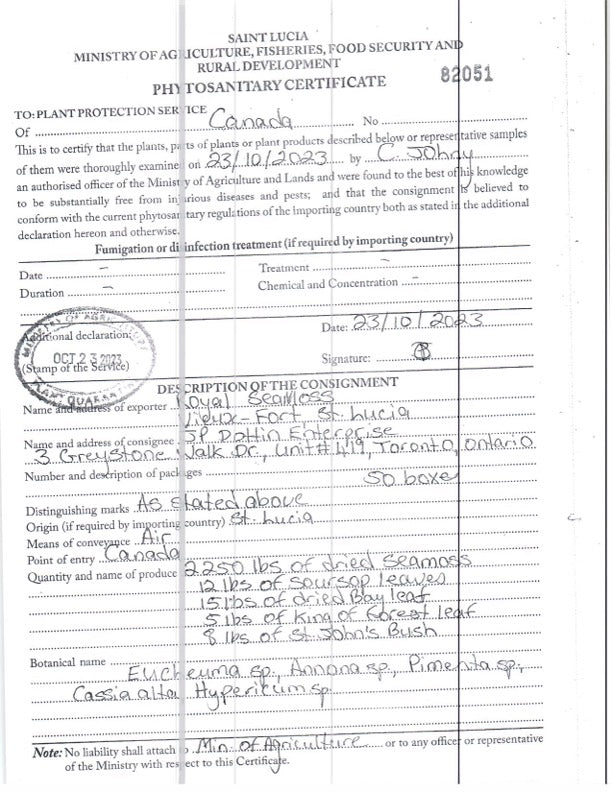 SAINT LUCIA
MINISTRY OF AGRICULTURE, FISHERIES, FOOD SECURITY AND
RURAL DEVELOPMENT
PHYTOSANITARY CERTIFICATE
82051
TO: PLANT PROTECTION SERVICE
Of Canada No
This is to certify that the plants, parts of plants or plant products described below or representative samples
of them were thoroughly examined on 23/10/2023 by C. Johny
an authorised officer of the Ministry of Agriculture and Lands and were found to the best of his knowledge
to be substantially free from injurious diseases and pests; and that the consignment is believed to
conform with the current phytosanitary regulations of the importing country both as stated in the additional
declaration hereon and otherwise.
Fumigation or disinfection treatment (if required by importing country)
Date – Treatment –
Duration – Chemical and Concentration –
MINISTRY OF AGRICULTURE
OCT 23 2023
PLANT QUARANTINE
Additional declaration: Date: 23/10/2023
(Stamp of the Service) Signature:
DESCRIPTION OF THE CONSIGNMENT
Name and address of exporter Royal Seamoss
Vieux-Fort St. Lucia
Name and address of consignee JP Dottin Enterprise
3 Greystone Walk Dr., Unit# 419, Toronto, Ontario
Number and description of packages 50 boxes
Distinguishing marks As stated above
Origin (if required by importing country) St. Lucia
Means of conveyance Air
Point of entry Canada
Quantity and name of produce 2250 lbs of dried seamoss
12 lbs of soursop leaves
15 lbs of dried Bay leaf
5 lbs of King of Forest leaf
8 lbs of St. John's Bush
Botanical name
Eucheuma sp., Annona sp., Pimenta sp.,
Cassia alta, Hypericum sp
Note: No liability shall attach to Min. of Agriculture or to any officer or representative
of the Ministry with respect to this Certificate.